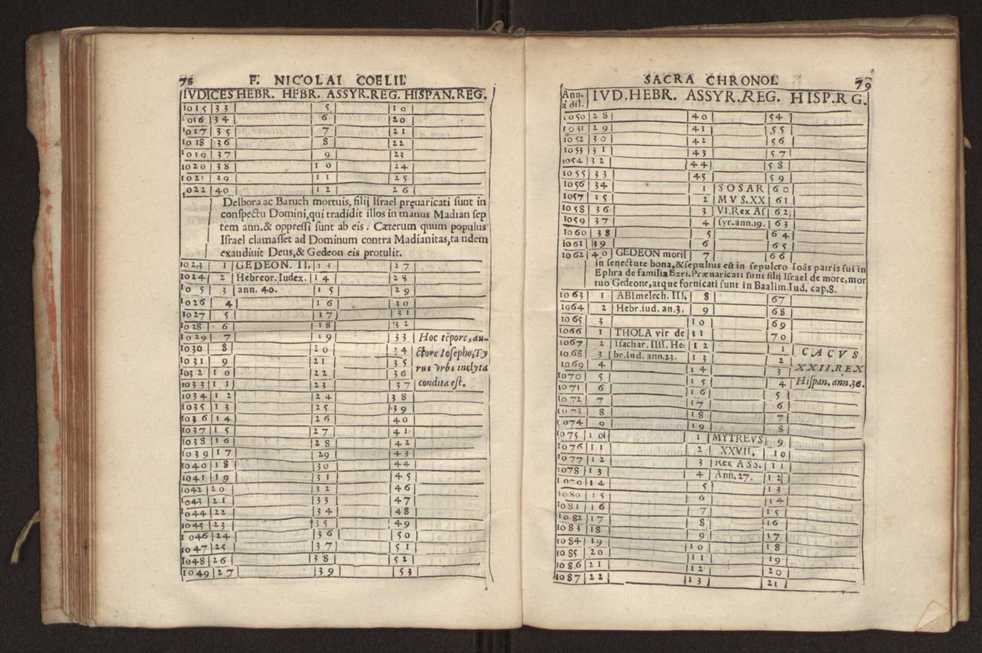 78 F. NICOLAI COELII
IVDICES HEBR. HEBR. ASSYR. REG. HISPAN. REG.
1015 33 5 10
1016 34 6 20
1017 35 7 21
1018 36 8 22
1019 37 9 23
1020 38 10 24
1021 39 11 25
1022 40 12 26
Delbora ac Baruch mortuis, filij Israel preuaricati sunt in
conspectu Domini, qui tradidit illos in manus Madian sep
tem ann. & oppressi sunt ab eis. Cæterum quum populus
Israel clamasset ad Dominum contra Madianitas, tandem
exaudiuit Deus, & Gedeon eis protulit.
1023 1 GEDEON. II. 13 27
1024 2 Hebreor. Iudex. 14 28
10 5 3 ann. 40. 15 29
1026 4 16 30
1027 5 17 31
1028 6 18 32
1029 7 19 33 Hoc tẽpore, au-
1030 8 20 34 ctore Iosepho, Ty
1031 9 21 35 rus vrbs inclyta
1032 10 22 36 condita est.
1033 11 23 37
1034 12 24 38
1035 13 25 39
1036 14 26 40
1037 15 27 41
1038 16 28 42
1039 17 29 43
1040 18 30 44
1041 19 31 45
1042 20 32 46
1043 21 33 47
1044 22 34 48
1045 23 35 49
1046 24 36 50
1047 25 37 51
1048 26 38 52
1049 27 39 53
SACRA CHRONOL 79
Ann. IVD. HEBR. ASSYR. REG. HISP. R G.
à dil.
1050 28 40 54
1051 29 41 55
1052 30 42 56
1053 31 43 57
1054 32 44 58
1055 33 45 59
1056 34 1 SOSAR 60
1057 35 2 MVS. XX 61
1058 36 3 VI. Rex As 62
1059 37 4 syr. ann. 19. 63
1060 38 5 64
1061 39 6 65
1062 40 GEDEON morit 7 66
in senectute bona, & sepultus est in sepulcro Ioâs patris sui in
Ephra de familia Ezri. Præuaricati sunt filij Israel de more, mor
tuo Gedeone, atque fornicati sunt in Baalim Iud. cap. 8.
1063 1 ABImelech. III. 8 67
1064 2 Hebr. iud. an. 3. 9 68
1065 3 10 69
1066 1 THOLA vir de 11 70
1067 2 Isachar. IIII. He- 12 1 CACVS
1068 3 br. iud. ann. 23. 13 2 XXII. REX
1069 4 14 3 Hispan. ann. 36.
1070 5 15 4
1071 6 16 5
1072 7 17 6
1073 8 18 7
1074 9 19 8
1075 10 1 MYTREVS 9
1076 11 2 XXVII, 10
1077 12 3 Rex Ass. 11
1078 13 4 Ann. 27. 12
1079 14 5 13
1080 15 6 14
1081 16 7 15
1082 17 8 16
1083 18 9 17
1084 19 10 18
1085 20 11 19
1086 21 12 20
1087 22 13 21